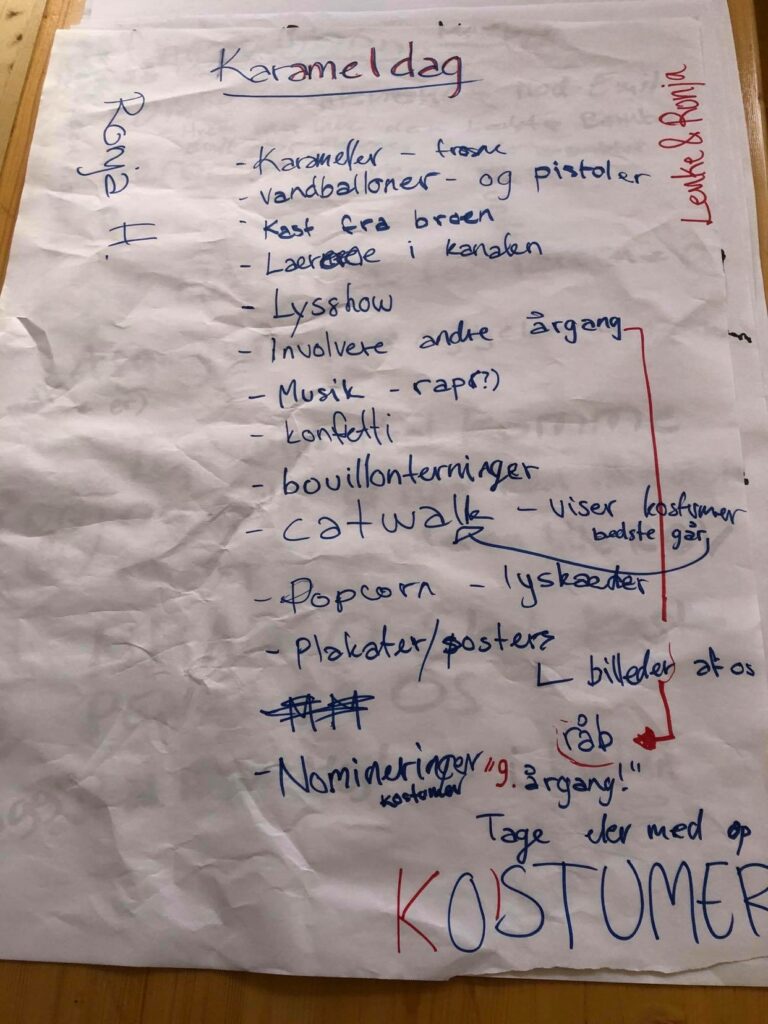 Karameldag
Ronja H.
Lenke & Ronja
- Karameller - frosne
- vandballoner - og pistoler
- Kast fra broen
- Lærere i kanalen
- Lysshow
- Involvere andre årgang
- Musik - rapr?)
- konfetti
- bouillonterninger
- catwalk - viser kostumer
bedste går
- Popcorn - lyskæder
- Plakater/posters
billeder af os
råb
- Nomineringer "9. årgang!"
kostumer
Tage med op
KOSTUMER